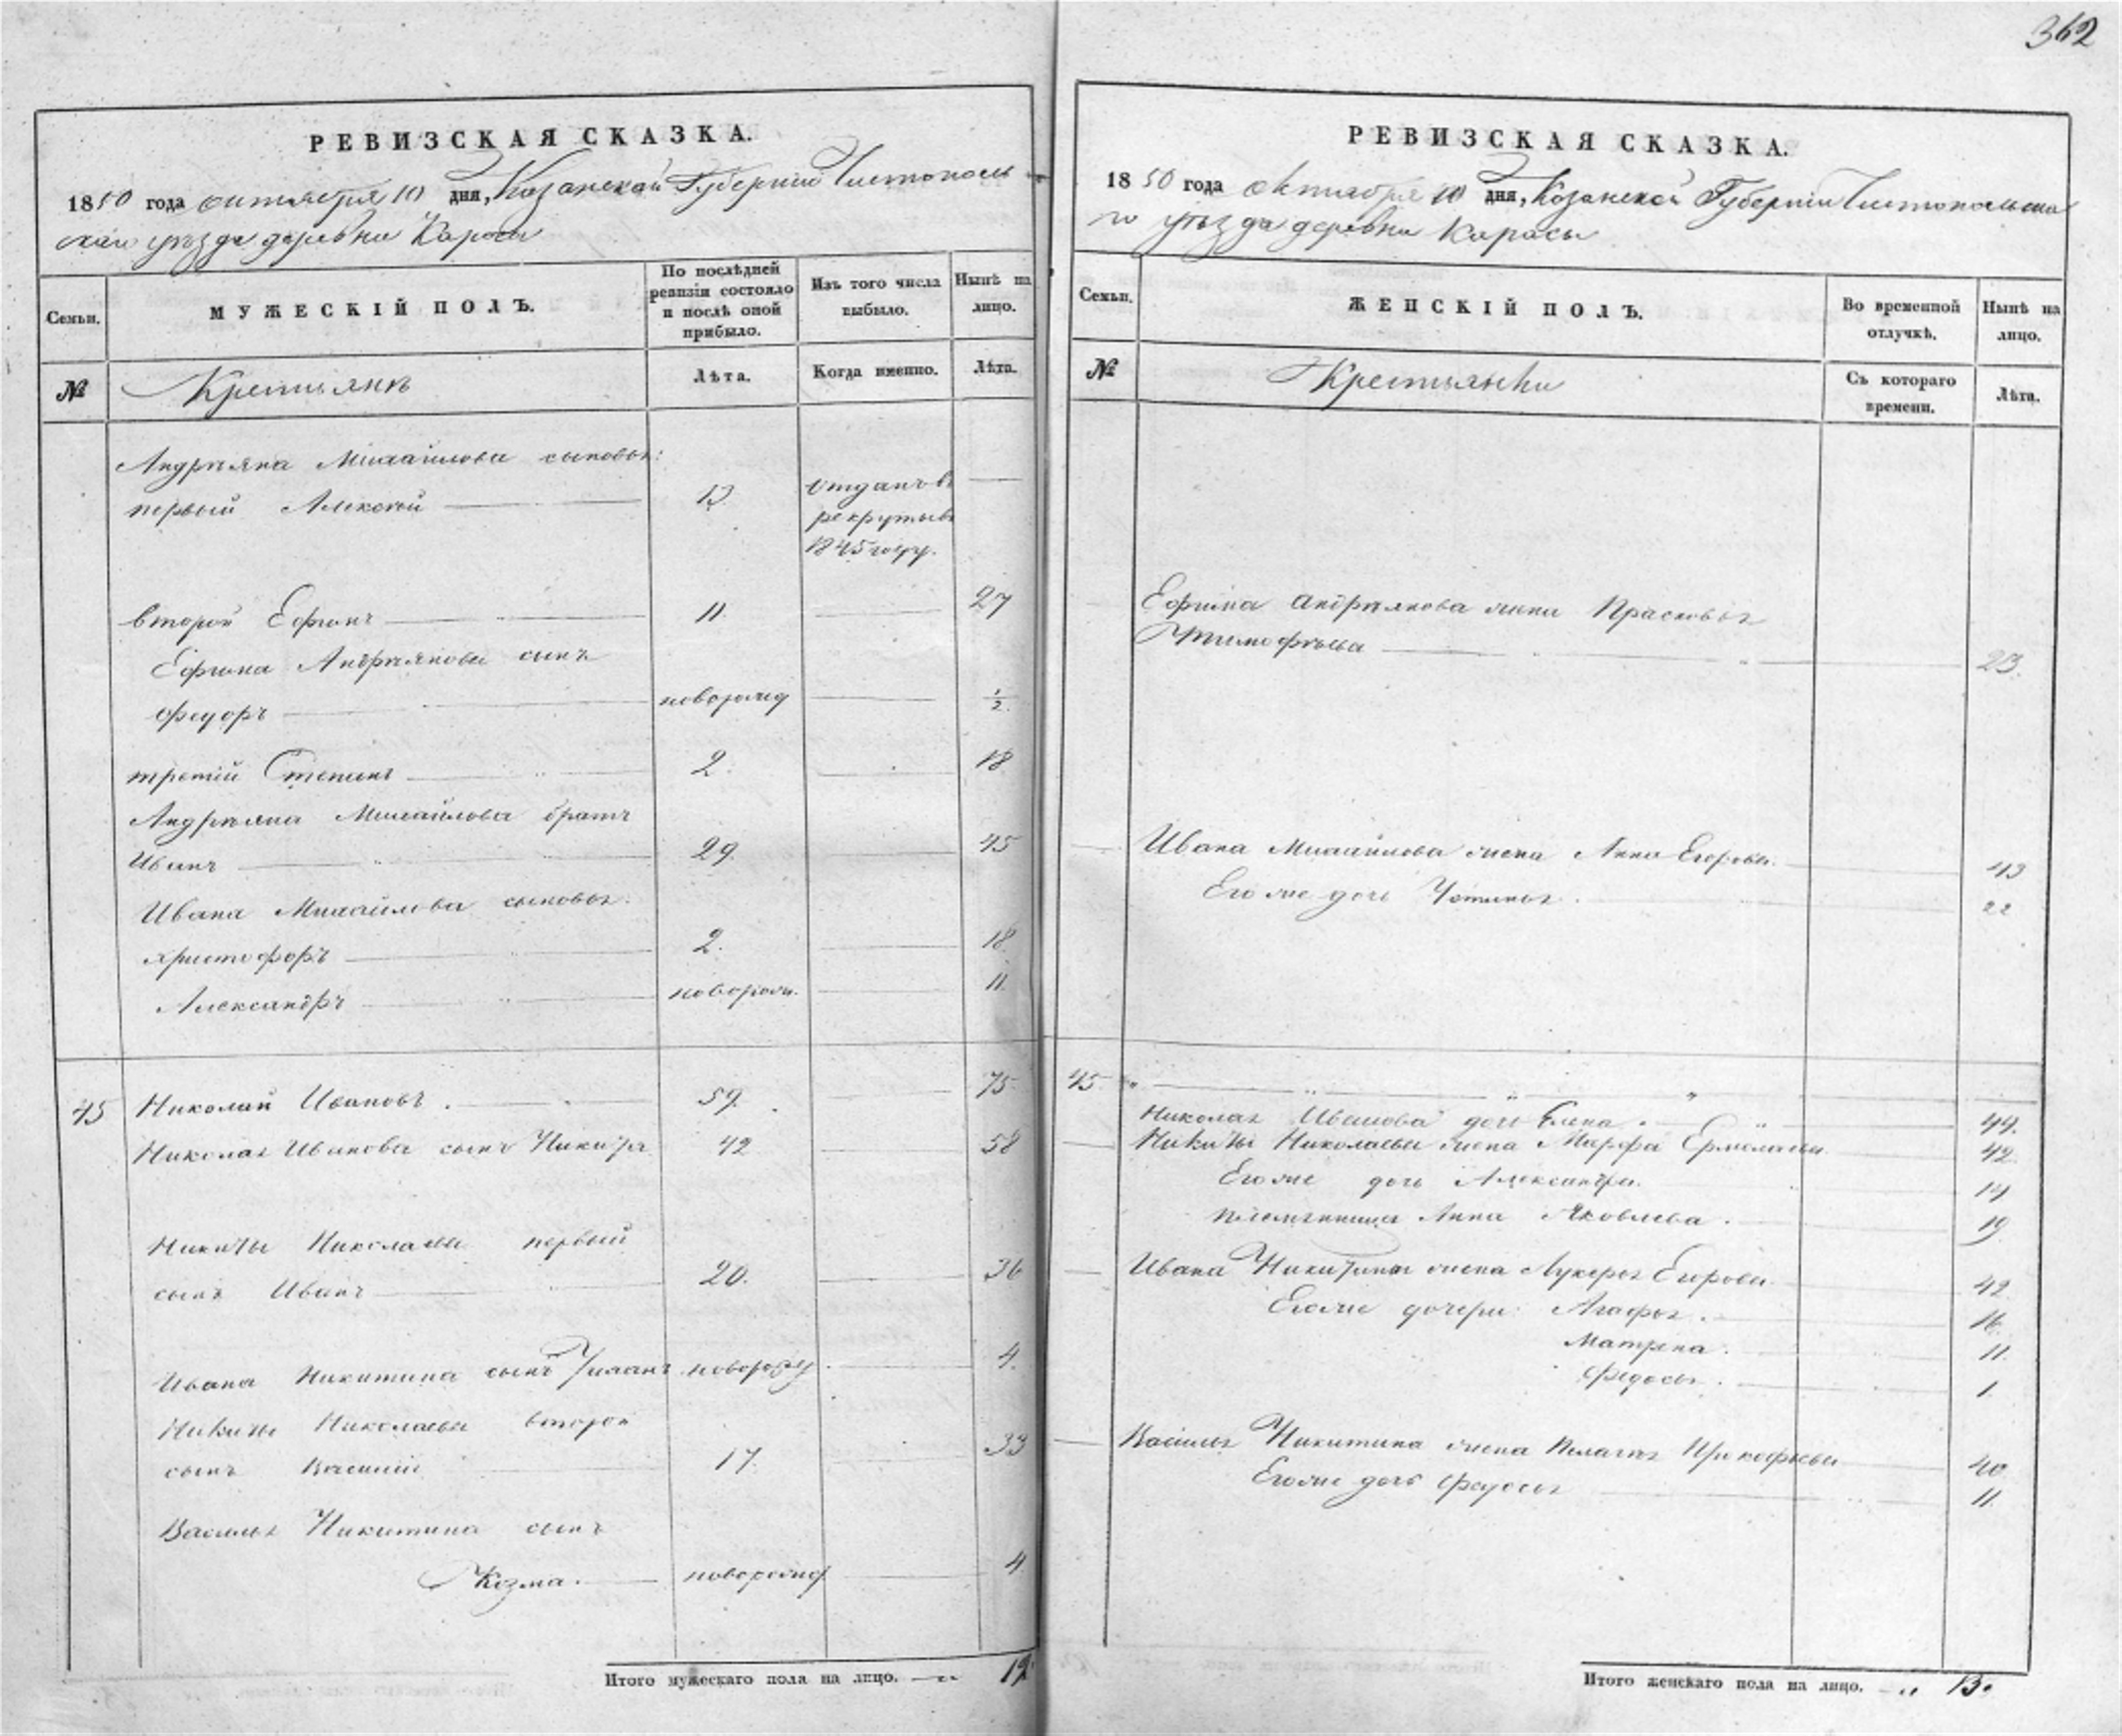 362
РЕВИЗСКАЯ СКАЗКА.
1850 года октября 10 дня, Казанской Губернии Чистополь
скаго уѣзда деревни Карасы
Семьи.
МУЖЕСКІЙ ПОЛЪ.
По послѣдней
ревизіи состояло
и послѣ оной
прибыло.
Изъ того числа
выбыло.
Нынѣ на
лицо.
№
Крестьянъ
Лѣта.
Когда именно.
Лѣта.
Андреяна Михайлова сыновья:
первый Алексей 13 отданъ в
рекруты въ
1845 году.
второй Ефимъ 11. 27
Ефима Андреянова сынъ
Федоръ новорожд ½
третий Степанъ 2. 18
Андреяна Михайлова братъ
Иванъ 29. 45
Ивана Михайлова сыновья:
Христофоръ 2. 18
Александръ новорожд. 11
45 Николай Ивановъ 59. 75
Николая Иванова сынъ Никита 42 58
Никиты Николаева первый
сынъ Иванъ 20. 36
Ивана Никитина сынъ новорожд. 4.
Никиты Николаева второй
сынъ Василий 17. 33
Василья Никитина сынъ
Козма. новорожд 4
Итого мужескаго пола на лицо. 12
РЕВИЗСКАЯ СКАЗКА.
1850 года октября 10 дня, Казанской Губернии Чистопольска
го уѣзда деревни Карасы
Семьи.
ЖЕНСКІЙ ПОЛЪ.
Во временной
отлучкѣ.
Нынѣ на
лицо.
№
Крестьянки
Съ котораго
времени.
Лѣта.
Ефима Андреянова жена Прасковья
Тимофѣева 23.
Ивана Михайлова жена Анна Егорова. 43
Его же дочь Устинья. 22
45 " " "
Николая Иванова дочь Елена. 44.
Никиты Николаева жена Марфа Ермолаева 42.
Его же дочь Александра. 14
племянница Анна Яковлева. 19
Ивана Никитина жена Лукерья Егорова 42
Его же дочери: Агафья. 16.
Матрена. 11.
Федосья. 1.
Василья Никитина жена Пелагея Прокофьева 40
Его же дочь Федосья 11.
Итого женскаго пола на лицо. 13.